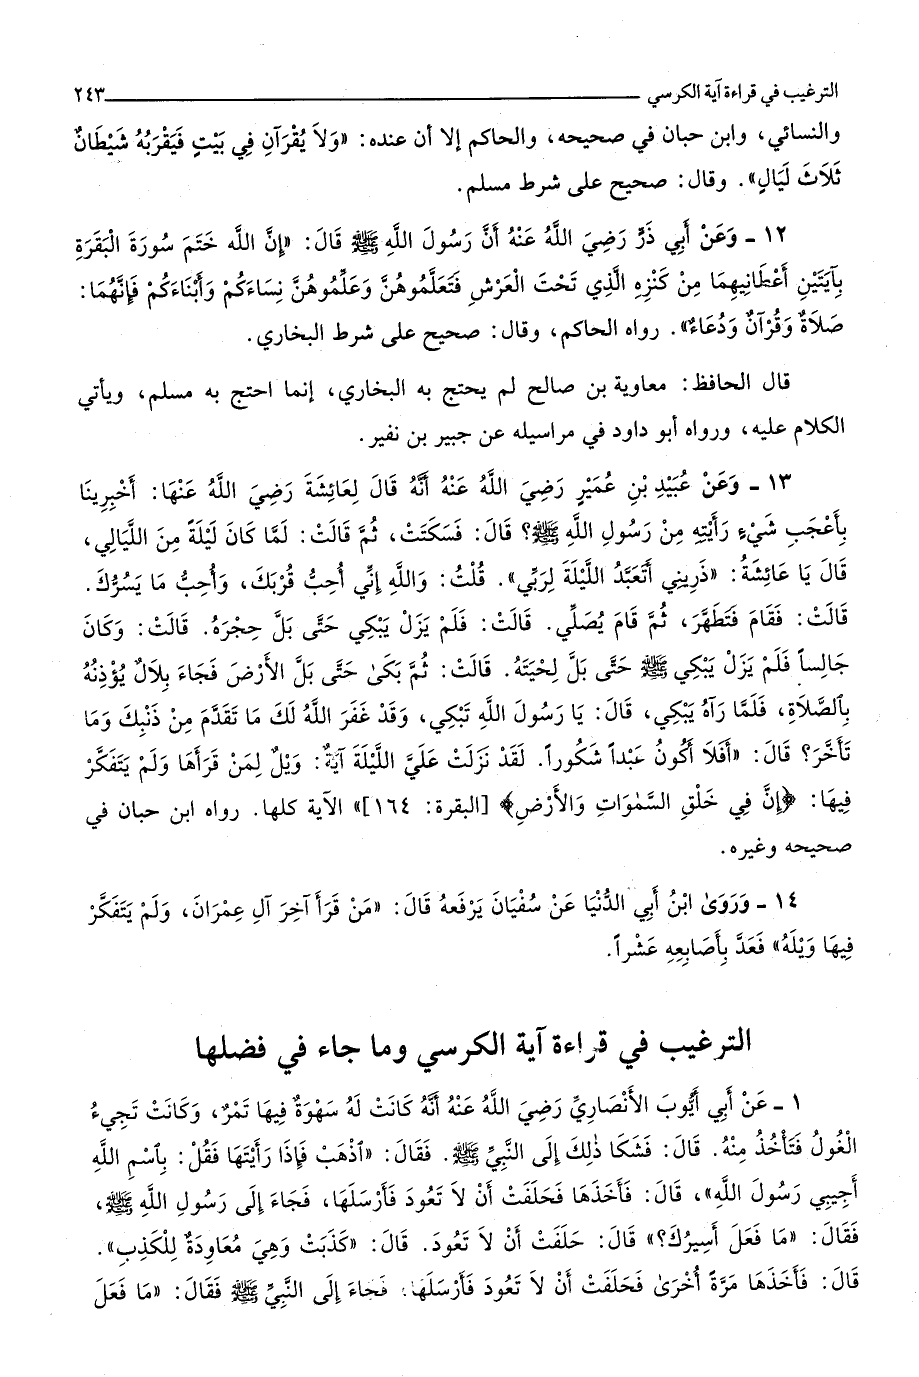 الترغيب في قراءة آية الكرسي ٢٤٣
والنسائي، وابن حبان في صحيحه، والحاكم إلا أن عنده: «وَلاَ يُقْرَآنِ فِي بَيْتٍ فَيَقْرَبُهُ شَيْطَانٌ
ثَلاَثَ لَيَالٍ». وقال: صحيح على شرط مسلم.
١٢ ـ وَعَنْ أَبِي ذَرٍّ رَضِيَ اللَّهُ عَنْهُ أَنَّ رَسُولَ اللَّهِ ﷺ قَالَ: «إِنَّ اللَّه خَتَمَ سُورَةَ الْبَقَرَةِ
بِآيَتَيْنِ أَعْطَانِيهِمَا مِنْ كَنْزِهِ الَّذِي تَحْتَ الْعَرْشِ فَتَعَلَّمُوهُنَّ وَعَلِّمُوهُنَّ نِسَاءَكُمْ وَأَبْنَاءَكُمْ فَإِنَّهُمَا:
صَلاَةٌ وَقُرْآنٌ وَدُعَاءٌ». رواه الحاكم، وقال: صحيح على شرط البخاري.
قال الحافظ: معاوية بن صالح لم يحتج به البخاري، إنما احتج به مسلم، ويأتي
الكلام عليه، ورواه أبو داود في مراسيله عن جبير بن نفير.
١٣ ـ وَعَنْ عُبَيْدِ بْنِ عُمَيْرٍ رَضِيَ اللَّهُ عَنْهُ أَنَّهُ قَالَ لِعَائِشَةَ رَضِيَ اللَّهُ عَنْهَا: أَخْبِرِينَا
بِأَعْجَبِ شَيْءٍ رَأَيْتِهِ مِنْ رَسُولِ اللَّهِ ﷺ؟ قَالَ: فَسَكَتَتْ، ثُمَّ قَالَتْ: لَمَّا كَانَ لَيْلَةً مِنَ اللَّيَالِي،
قَالَ يَا عَائِشَةُ: «ذَرِينِي أَتَعَبَّدُ اللَّيْلَةَ لِرَبِّي». قُلْتُ: وَاللَّهِ إِنِّي أُحِبُّ قُرْبَكَ، وَأُحِبُّ مَا يَسُرُّكَ.
قَالَتْ: فَقَامَ فَتَطَهَّرَ، ثُمَّ قَامَ يُصَلِّي. قَالَتْ: فَلَمْ يَزَلْ يَبْكِي حَتَّى بَلَّ حِجْرَهُ. قَالَتْ: وَكَانَ
جَالِساً فَلَمْ يَزَلْ يَبْكِي ﷺ حَتَّى بَلَّ لِحْيَتَهُ. قَالَتْ: ثُمَّ بَكَىٰ حَتَّى بَلَّ الأَرْضَ فَجَاءَ بِلاَلٌ يُؤْذِنُهُ
بِٱلصَّلاَةِ، فَلَمَّا رَآهُ يَبْكِي، قَالَ: يَا رَسُولَ اللَّهِ تَبْكِي، وَقَدْ غَفَرَ اللَّهُ لَكَ مَا تَقَدَّمَ مِنْ ذَنْبِكَ وَمَا
تَأَخَّرَ؟ قَالَ: «أَفَلاَ أَكُونُ عَبْداً شَكُوراً. لَقَدْ نَزَلَتْ عَلَيَّ اللَّيْلَةَ آيَةٌ: وَيْلٌ لِمَنْ قَرَأَهَا وَلَمْ يَتَفَكَّرْ
فِيهَا: ﴿إِنَّ فِي خَلْقِ السَّمٰوَاتِ وَالأَرْضِ﴾ [البقرة: ١٦٤]» الآية كلها. رواه ابن حبان في
صحيحه وغيره.
١٤ ـ وَرَوَىٰ ابْنُ أَبِي الدُّنْيَا عَنْ سُفْيَانَ يَرْفَعهُ قَالَ: «مَنْ قَرَأَ آخِرَ آلِ عِمْرَانَ، وَلَمْ يَتَفَكَّرْ
فِيهَا وَيْلَهُ» فَعَدَّ بِأَصَابِعِهِ عَشْراً.
الترغيب في قراءة آية الكرسي وما جاء في فضلها
١ ـ عَنْ أَبِي أَيُّوبَ الأَنْصَارِيِّ رَضِيَ اللَّهُ عَنْهُ أَنَّهُ كَانَتْ لَهُ سَهْوَةٌ فِيهَا تَمْرٌ، وَكَانَتْ تَجِيءُ
الْغُولُ فَتَأْخُذُ مِنْهُ. قَالَ: فَشَكَا ذٰلِكَ إِلَى النَّبِيِّ ﷺ. فَقَالَ: «ٱذْهَبْ فَإِذَا رَأَيْتَهَا فَقُلْ: بِٱسْمِ اللَّهِ
أَجِيبِي رَسُولَ اللَّهِ»، قَالَ: فَأَخَذَهَا فَحَلَفَتْ أَنْ لاَ تَعُودَ فَأَرْسَلَهَا، فَجَاءَ إِلَى رَسُولِ اللَّهِ ﷺ،
فَقَالَ: «مَا فَعَلَ أَسِيرُكَ؟» قَالَ: حَلَفَتْ أَنْ لاَ تَعُودَ. قَالَ: «كَذَبَتْ وَهِيَ مُعَاوِدَةٌ لِلْكَذِبِ».
قَالَ: فَأَخَذَهَا مَرَّةً أُخْرَىٰ فَحَلَفَتْ أَنْ لاَ تَعُودَ فَأَرْسَلَهَا، فَجَاءَ إِلَى النَّبِيِّ ﷺ فَقَالَ: «مَا فَعَلَ